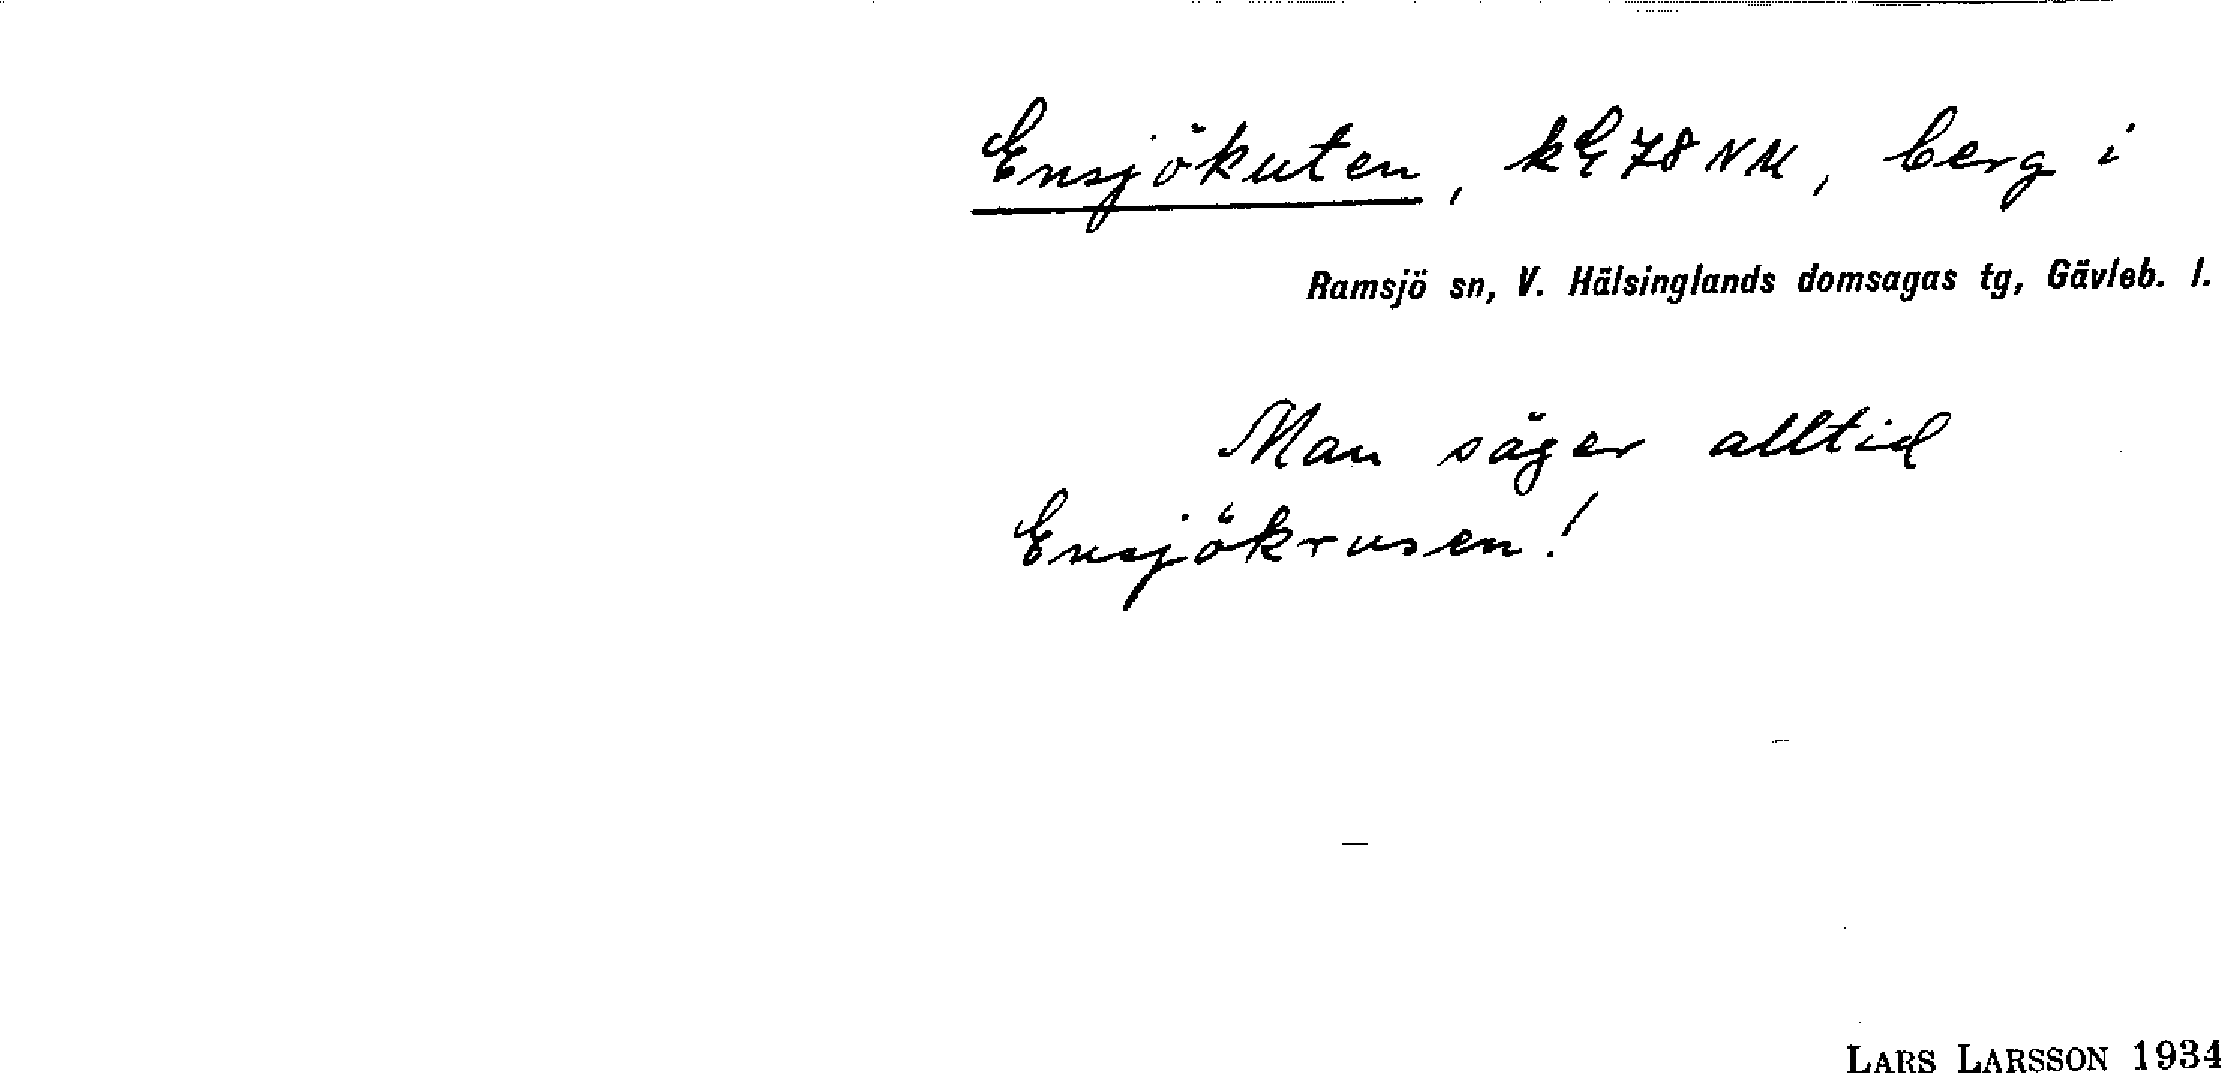 Ensjökuten, kE78NM, berg i
Ramsjö sn, V. Hälsinglands domsagas tg, Gävleb. l.
Man säger alltid
Ensjökrusen!
LARS LARSSON 1934